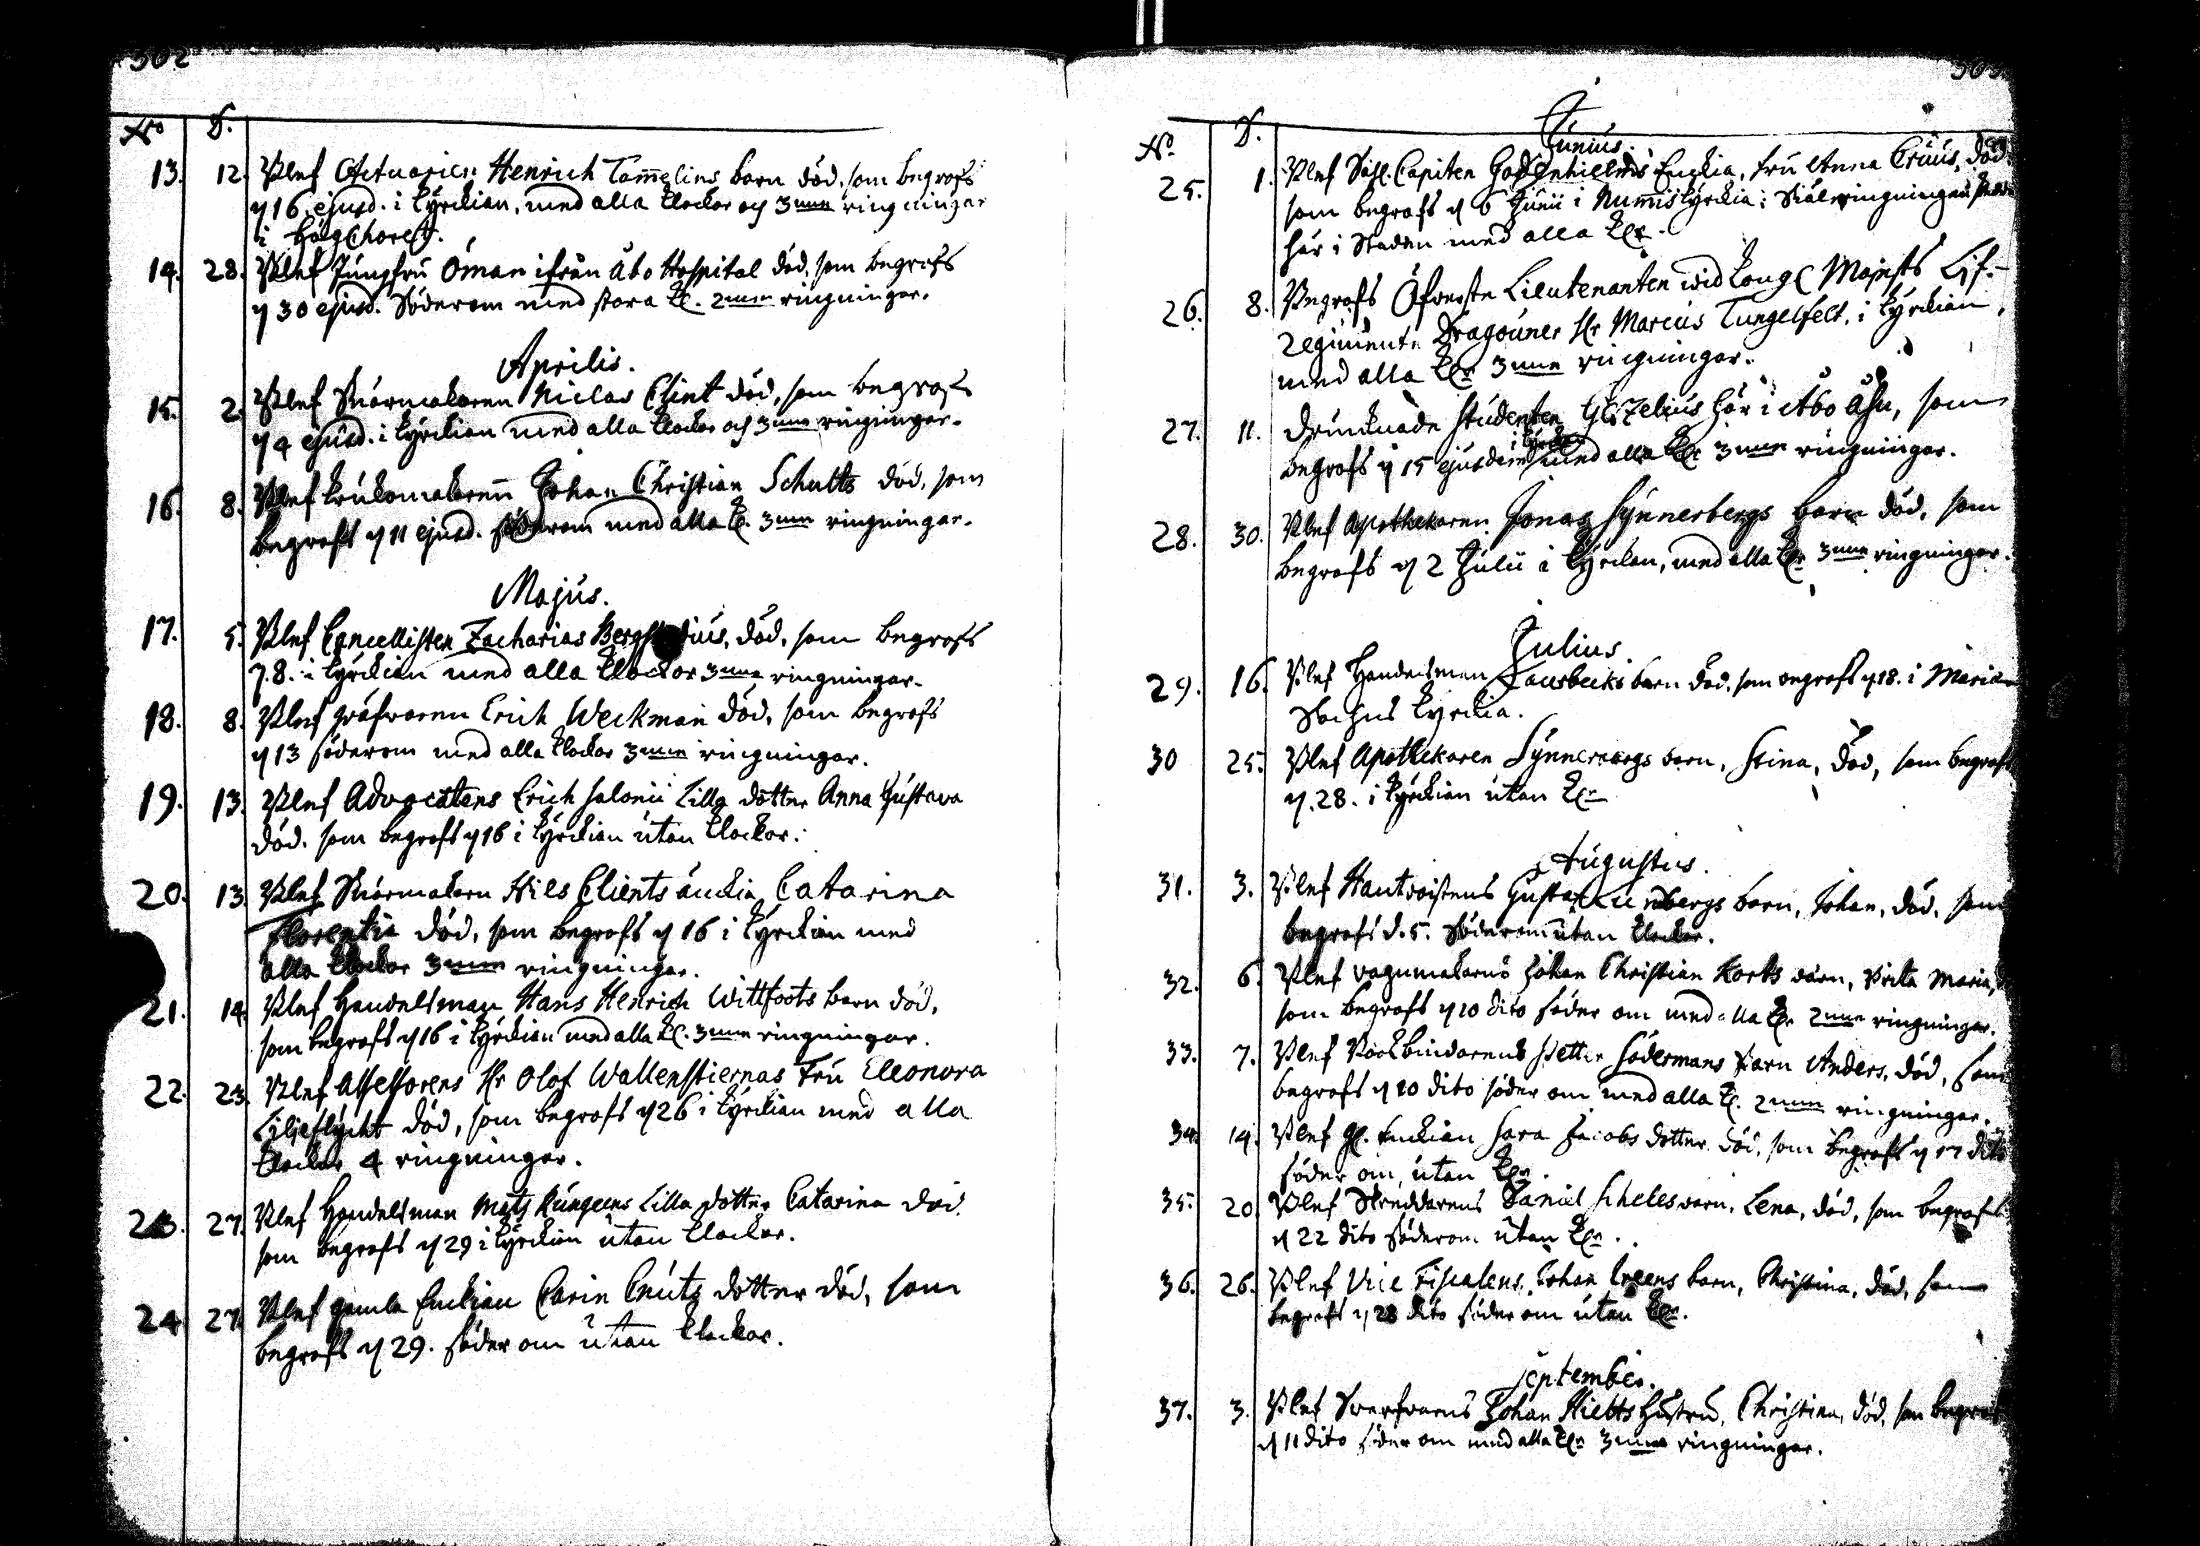 302
No D.
13. 12. Blef Actuarien Henrich Tam̅elins barn död, som begrofs
d 16. ejusd. i Kyrckian, med alla klockor och 3nne ringningar
i högChoret.
14. 28. Blef Jungfru Öman ifrån Åbo Hospital död, som begrofs
d 30 ejusd. Söderom med stora Kl. 2nne ringningar.
Aprilis.
15. 2. Blef Snörmakaren Niclas Clint död, som begrofs
d 4 ejusd. i Kyrckian med alla klockor och 3nne ringningar.
16. 8. Blef krukomakaren̅ Johan Christian Schultz död, som
begrofs d 11 ejusd. söderom med alla kl. 3nne ringningar.
Majus.
17. 5. Blef Cancellisten Zacharias död, som begrofs
d. 8. i Kyrckian med alla klockor 3nne ringningar.
18. 8. Blef Erich Weckman död, som begrofs
d 13 söderom med alla klockor 3nne ringningar.
19. 13. Blef Advocatens Erich Salonii Lilla dotter Anna Gustava
död. som begrofs d 16 i Kyrckian utan klockor.
20. 13. Blef Snörmakarn Nils Clients änckia Catarina
Florentin död, som begrofs d 16 i Kyrckian med
alla klockor 3nne ringningar.
21. 14. Blef Handelsman Hans Henrich Wittfoots barn död,
som begrofs d 16 i Kyrckian med alla kl. 3nne ringningar.
22. 23. Blef Assessorens Hr Olof Wallenstiernas Fru Eleonora
Liljeflycht död, som begrofs d 26 i Kyrckian med alla
klockor 4 ringningar.
23. 27. Blef Handelsman Mats Lilla dotter Catarina död.
som begrofs d 29 i Kyrckian utan klockor.
24. 27. Blef gamla Enckian Carin Cnuts dotter död, som
begrofs d 29. söder om utan klockor.
303
No. D.
Junius.
25. 1. Blef Sahl. Capiten Enckia, Fru Anna Cruus, död
som begrofs d 6 Junii i Num̅is Kyrckia: Siälringningen
här i Staden med alla klr.
26. 8. Begrofs Öfverste Lieutenanten wid Kongl Majests Lif-
Regimente Dragouner Hr Marcus Tungelfelt, i Kyrckian,
med alla klr 3nne ringningar.
27. 11. Drunknade Studenten Gezelius här i Åbo Åhn, som
begrofs d 15 ejusdem i Kyrckian med alla klr 3nne ringningar.
28. 30. Blef Apothekaren Jonas Synnerbergs barn död, som
begrofs d 2 Julii i Kyrckan, med alla klr 3nne ringningar.
Julius.
29. 16. Blef Handelsman barn död, som begrofs d 18. i Mariæ
Sochns Kyrckia.
30 25. Blef Apothekaren Synnerbergs barn, Stina, död, som begrofs
d. 28. i Kyrckian utan klr
Augustus.
31. 3. Blef Hautboistens Gustaf Lundbergs barn, Johan, död, som
begrofs d. 5. Söderom utan klockor.
32. 6. Blef vagnmakarns Johan Christian Korts barn, Brita Maria,
som begrofs d 10 dito söder om med alla klr 2nne ringningar.
33. 7. Blef Bookbindarens Petter Södermans barn Anders, död, som
begrofs d 10 dito söder om med alla kl. 2nne ringningar.
34. 14. Blef gl. Enckian Sara Jacobs dotter död, som begrofs d 17 dito
söder om, utan klr.
35. 20. Blef Skreddarens Daniel Scheles barn, Lena, död, som begrofs
d 22 dito söderom utan klr.
36. 26. Blef Vice Fiscalens, Johan barn, Christina, död, som
begrofs d 28 dito söder om utan klr.
September.
37. 3. Blef Swarfvarens Johan hustru, Christina, död, som begrofs
d 11 dito söder om med alla klr 3nne ringningar.